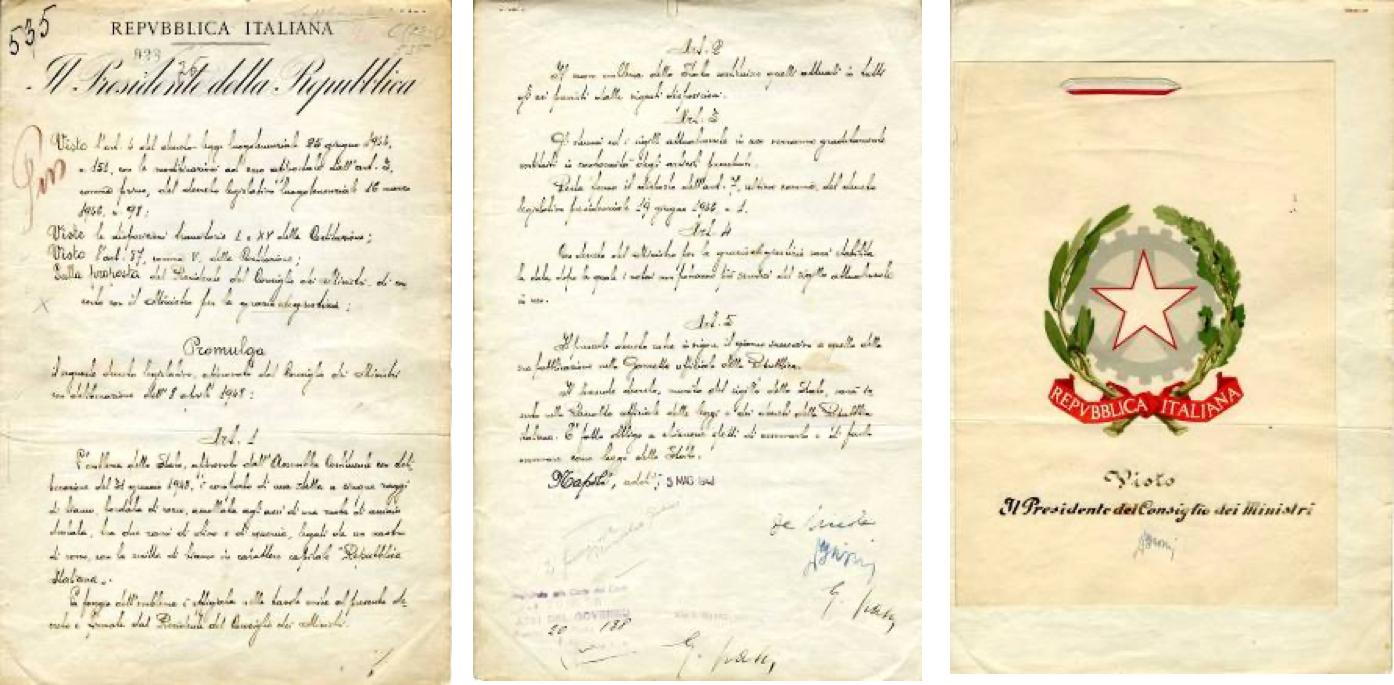 535
REPVBBLICA ITALIANA
Il Presidente della Repubblica
Visto l'art. 4 del decreto legge luogotenenziale 25 giugno 1944,
n. 151, con le modificazioni ad esso apportate dall'art. 3,
comma primo, del decreto legislativo luogotenenziale 16 marzo
1946, n. 98;
Viste le disposizioni transitorie I e XV della Costituzione;
Visto l'art. 87, comma V, della Costituzione;
Sulla proposta del Presidente del Consiglio dei Ministri, di con
certo con il Ministro per la grazia e giustizia;
Promulga
il seguente decreto legislativo, approvato dal Consiglio dei Ministri
con deliberazione dell'8 aprile 1948:
Art. 1
L'emblema dello Stato, approvato dall'Assemblea Costituente con deli-
berazione del 31 gennaio 1948, è costituito di una stella a cinque raggi
di bianco, bordata di rosso, accollata agli assi di una ruota di acciaio
dentata, tra due rami di olivo e di quercia, legati da un nastro
di rosso, con la scritta di bianco in carattere capitale "Repubblica
Italiana".
La foggia dell'emblema è
del Presidente del Consiglio dei Ministri.
Art. 2
Il nuovo emblema dello Stato sostituisce quelli attuali in tutti
gli usi previsti dalle vigenti disposizioni.
Art. 3
Gli stemmi ed i sigilli attualmente in uso verranno gradatamente
sostituiti in conformità degli articoli precedenti.
Resta fermo il disposto dell'art. 7, ultimo comma, del decreto
legislativo presidenziale 19 giugno 1946, n. 1.
Art. 4
Con decreto del Ministro per la grazia e giustizia sarà stabilita
la data dopo la quale i notai non potranno più servirsi del sigillo attualmente
in uso.
Art. 5
Il presente decreto entra in vigore il giorno successivo a quello della
sua pubblicazione nella Gazzetta Ufficiale della Repubblica.
Il presente decreto, munito del sigillo dello Stato, sarà in
serto nella Raccolta ufficiale delle leggi e dei decreti della Repubblica
italiana. È fatto obbligo a chiunque spetti di osservarlo e di farlo
osservare come legge dello Stato.
Napoli, addì, 5 MAG. 1948
ATTI DEL GOVERNO
20 138
REPVBBLICA ITALIANA
Visto
Il Presidente del Consiglio dei Ministri